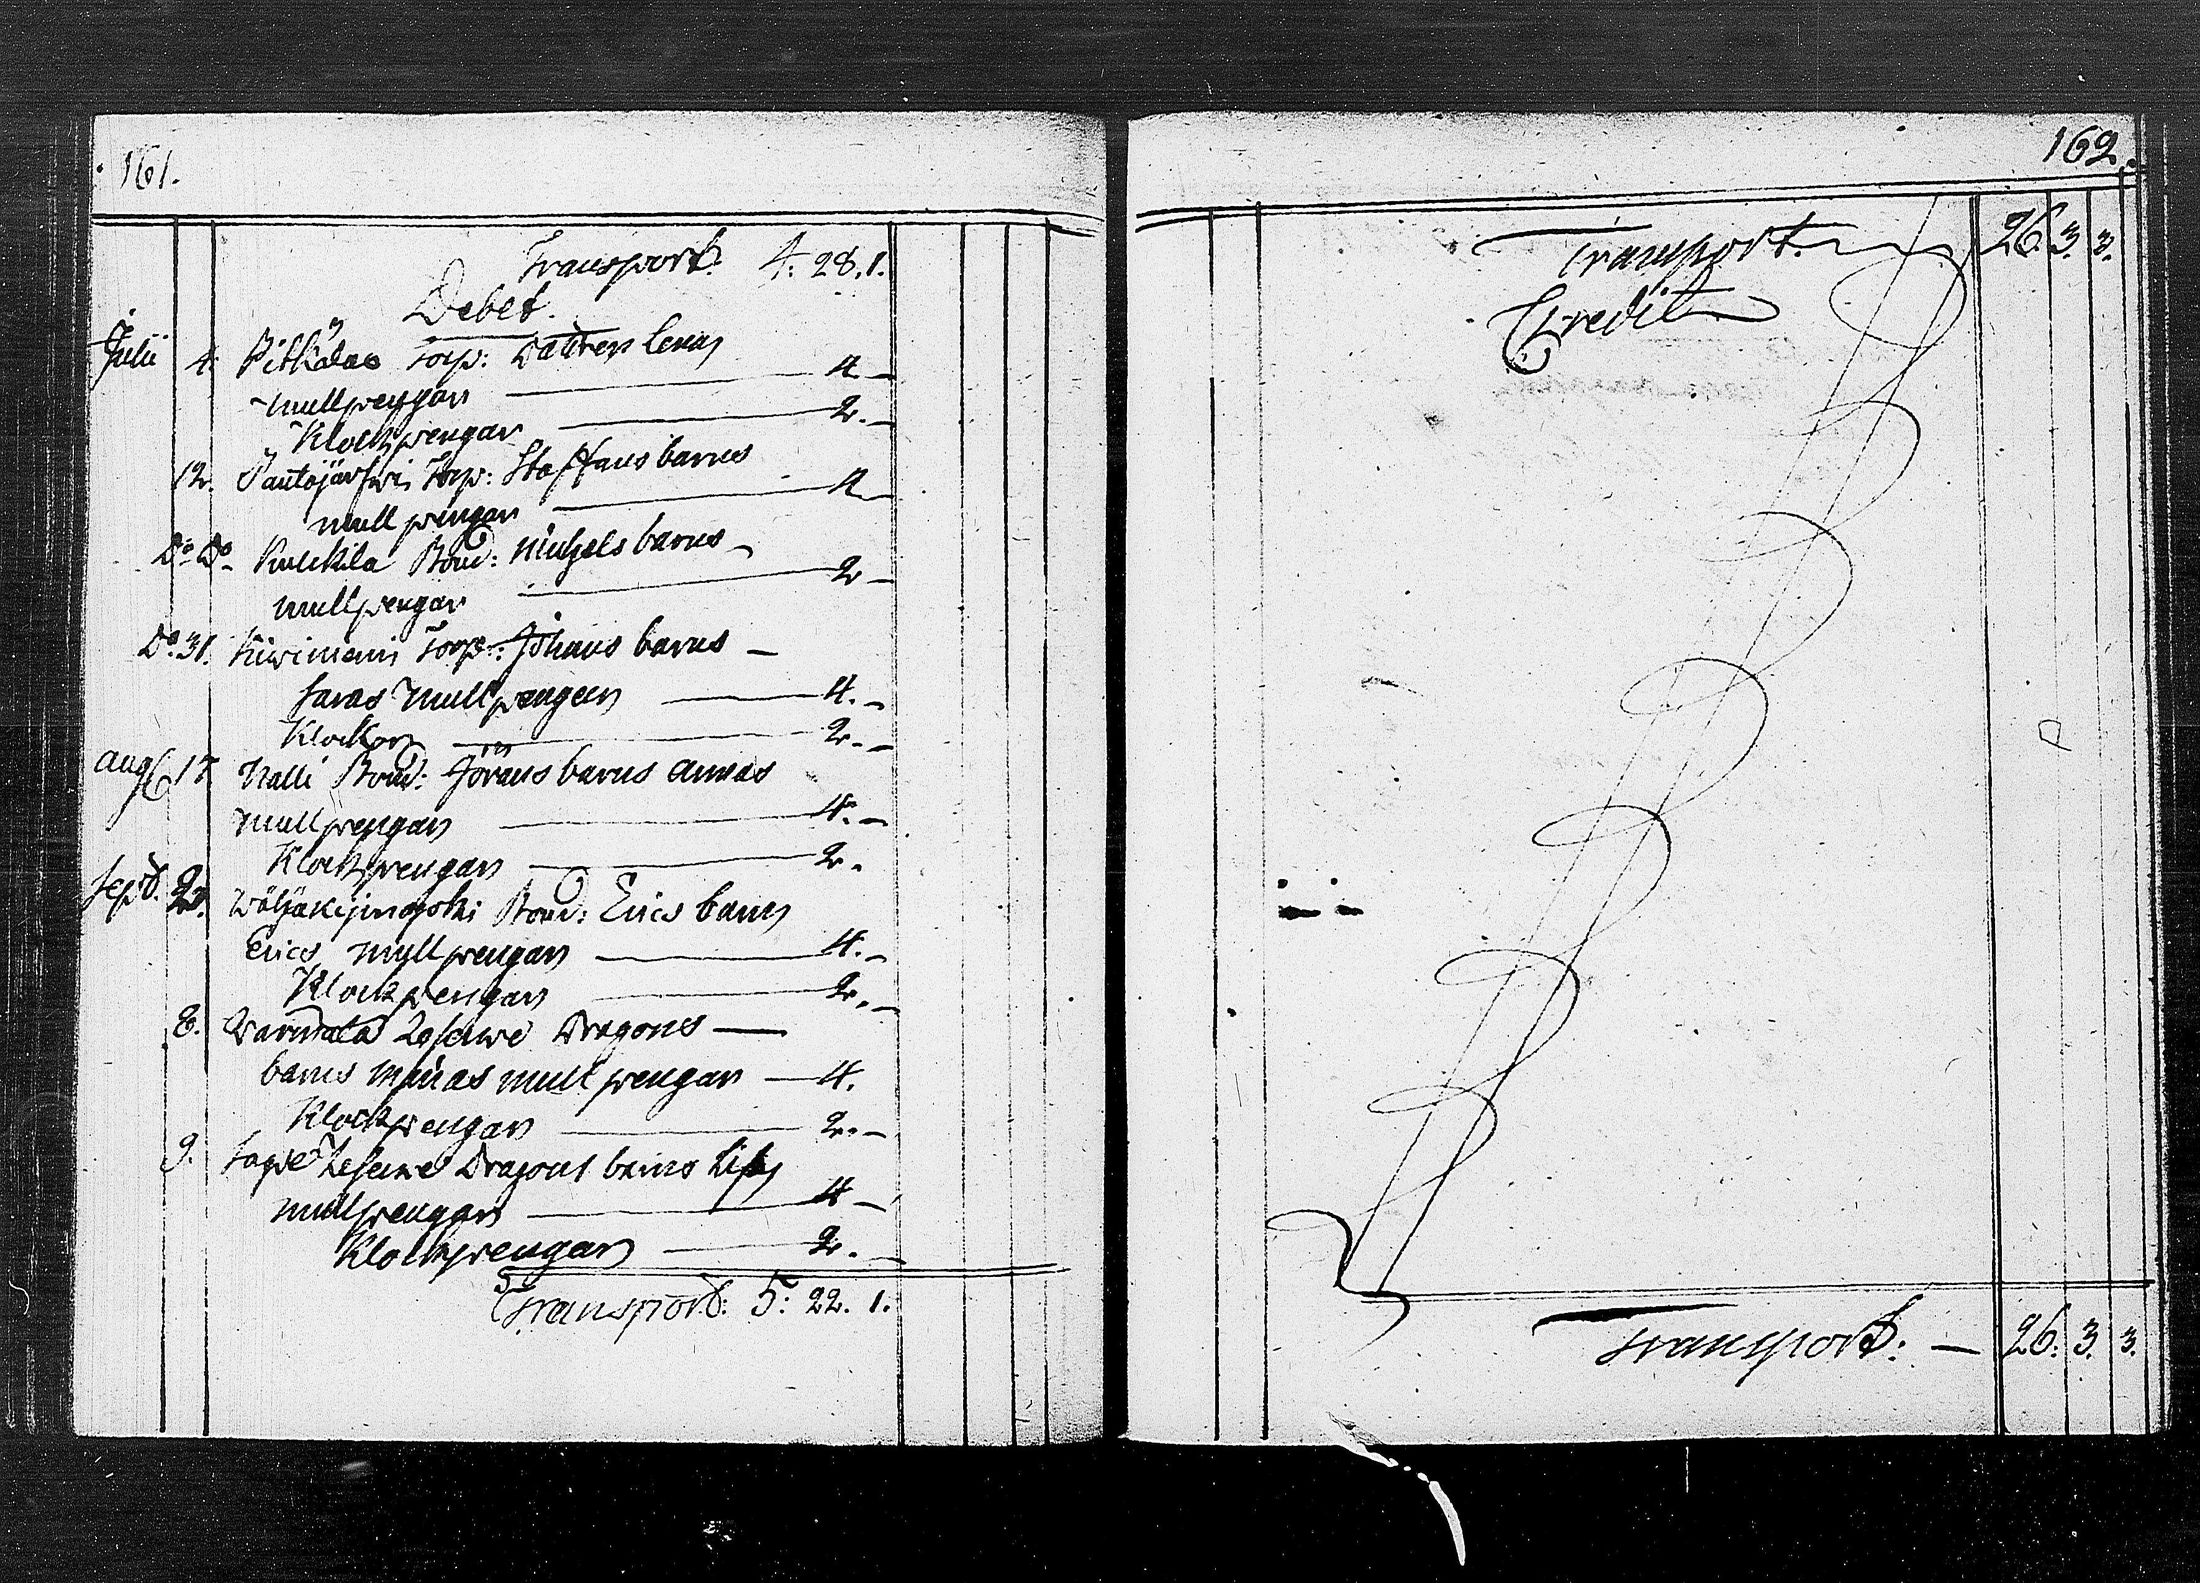 161.
Transport: 4: 28. 1.
Debet.
Julii 4. Pitkälas Torp: Dattren Lenas
mullpengar 4 —
Klockpengar 2. —
12. Pantojärfwi Torp: Staffans barns
mull pengar 4 —
Do Do Kulckila Bond: Michels barns —
mullpengar 2 —
Do. 31. Kiwiniemi Torp: Johans barns —
Saras mullpengar 4. —
Klockan 2. —
Aug 17 Nalli Bond: Jörans barns Annas
mullpengar 4. —
Klockpengar 2.
Sept. 2. Bond: Erics barns
Erics mullpengar 4. —
Klockpengar 2. —
8. Warmala Reserwe Dragons —
barns Minas mull pengar — 4.
Klockpengar 2. —
9. Reserwe Dragons barns Lisas
mullpengar 4 —
Klockpengar 2. —
Transport: 5: 22. 1.
162.
Transport. 26. 3. 3.
Credit
Transport: — 26. 3. 3.